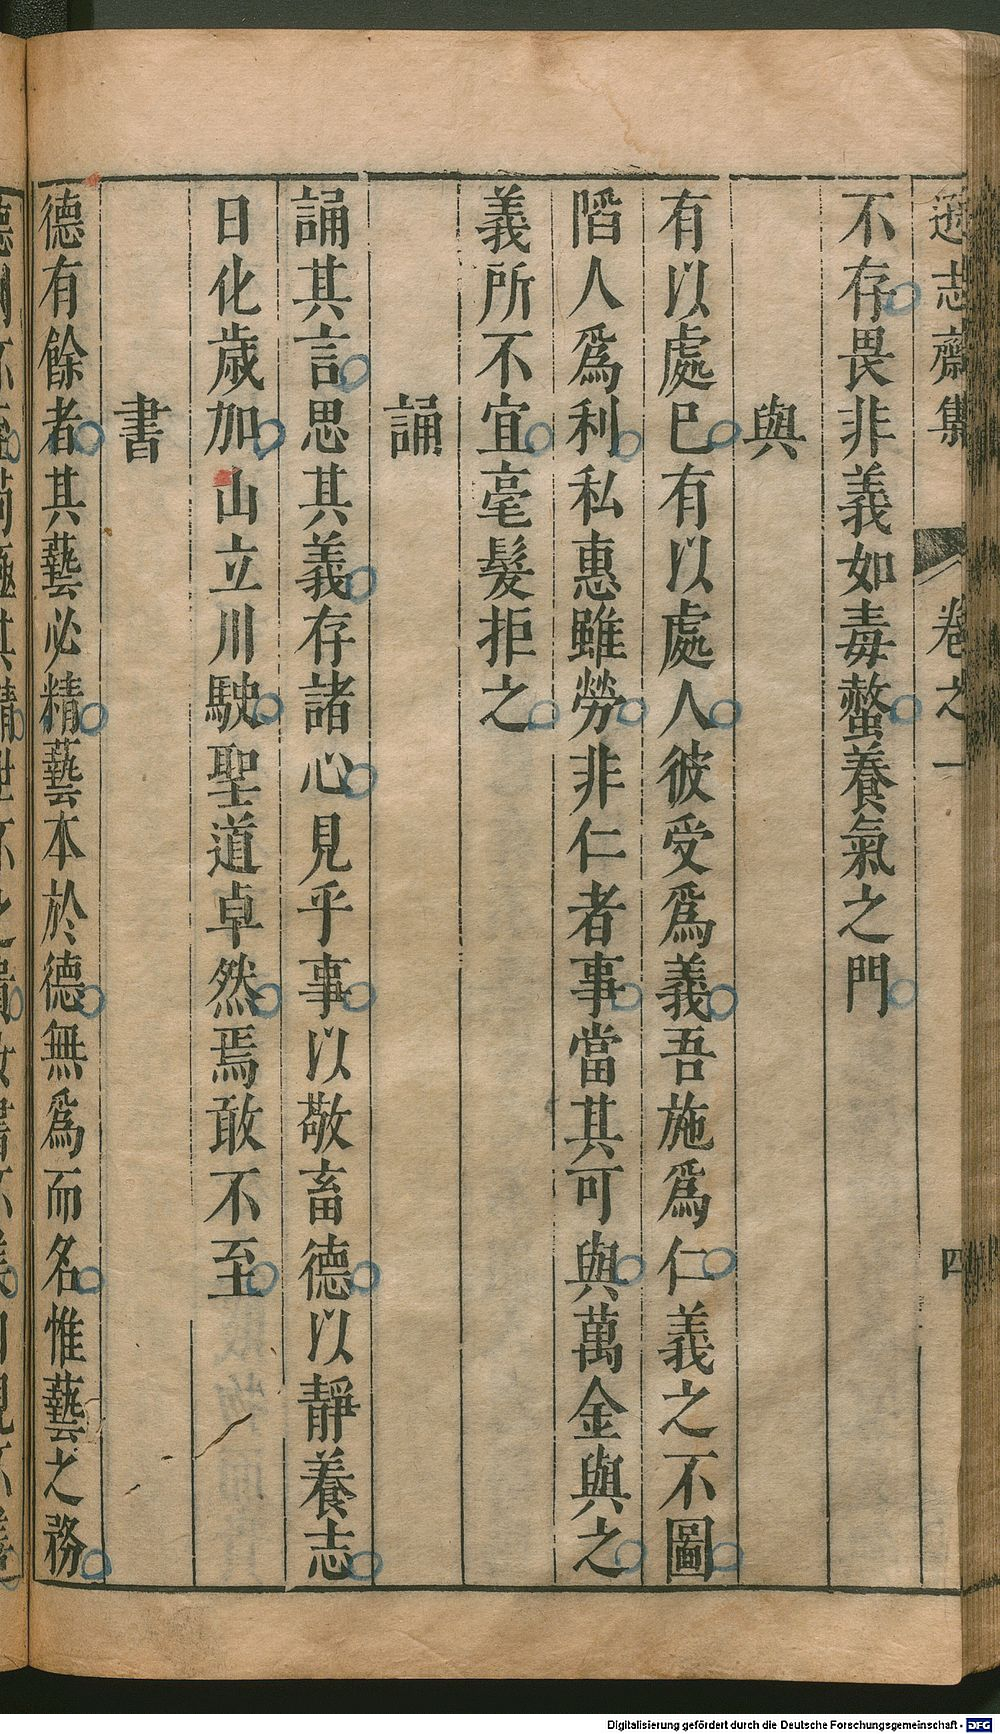 遜志齋集 卷之一 四
不存畏非義如毒螫養氣之門
與
有以處已有以處人彼受爲義吾施爲仁義之不圖
陷人爲利私惠雖勞非仁者事當其可與萬金與之
義所不宜毫髮拒之
誦
誦其言思其義存諸心見乎事以敬畜德以靜養志
日化歲加山立川駛聖道卓然焉敢不至
書
德有餘者其藝必精藝本於德無爲而名惟藝之務
Digitalisierung gefördert durch die Deutsche Forschungsgemeinschaft - DFG